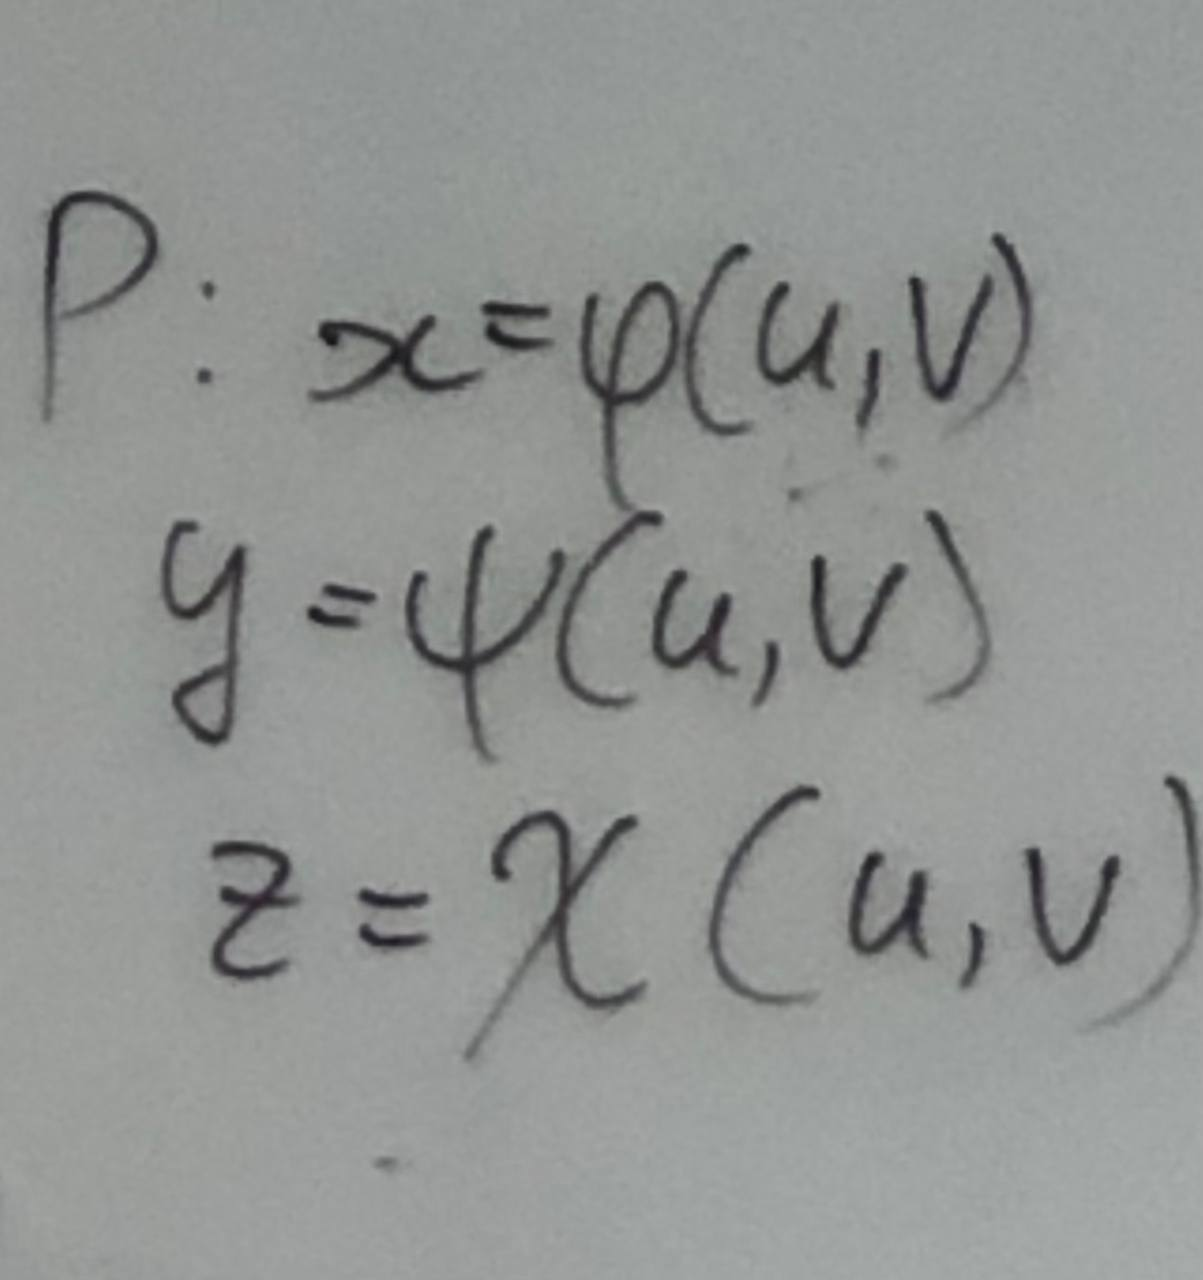 P: x=φ(u,v)
y=ψ(u,v)
z=χ(u,v)